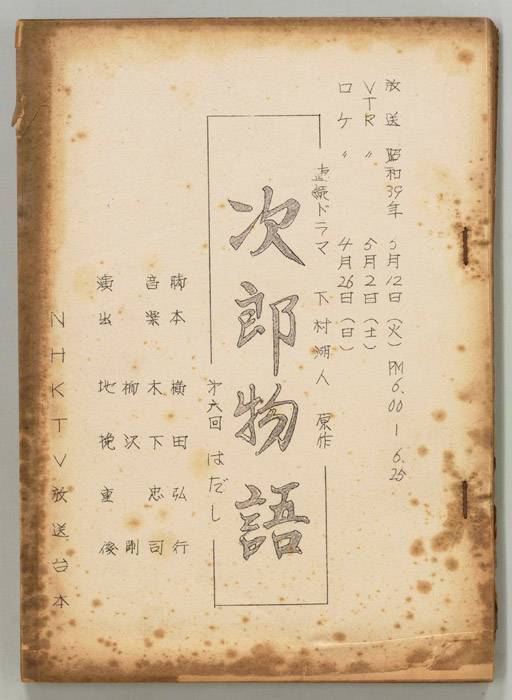 放送 昭和39年 5月12日（火）PM 6.00 ー 6.25
VTR 〃 5月2日（土）
ロケ 〃 4月26日（日）
連続ドラマ 下村湖人 原作
次郎物語
第六回 はだし
脚本 横田弘行
音楽 木下忠司
柳沢 剛
演出 地挽重俊
NHKTV放送台本